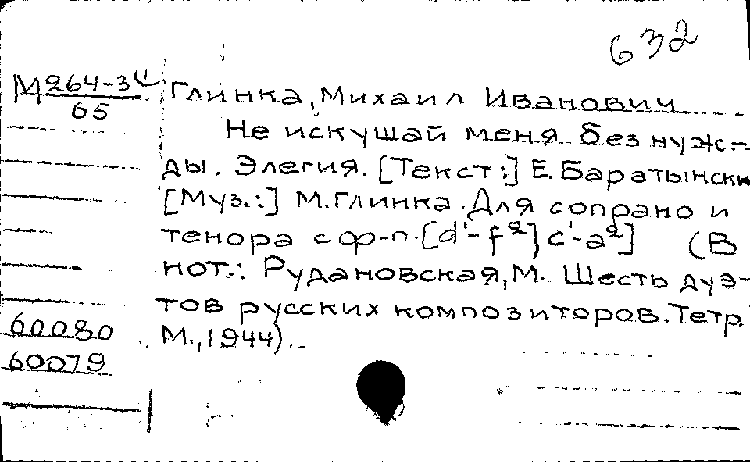 632
М 264-3
65
Глинка, Михаил Иванович
Не искушай меня без нуж-
ды. Элегия. [Текст:] Е. Баратынски
[Муз.:] М. Глинка. Для сопрано и
тенора с ф-п. [d'-f²; c'-a²] (В
нот.: Рудановская, М. Шесть дуэ-
тов русских композиторов. Тетр.
М., 1944).
60080
60079